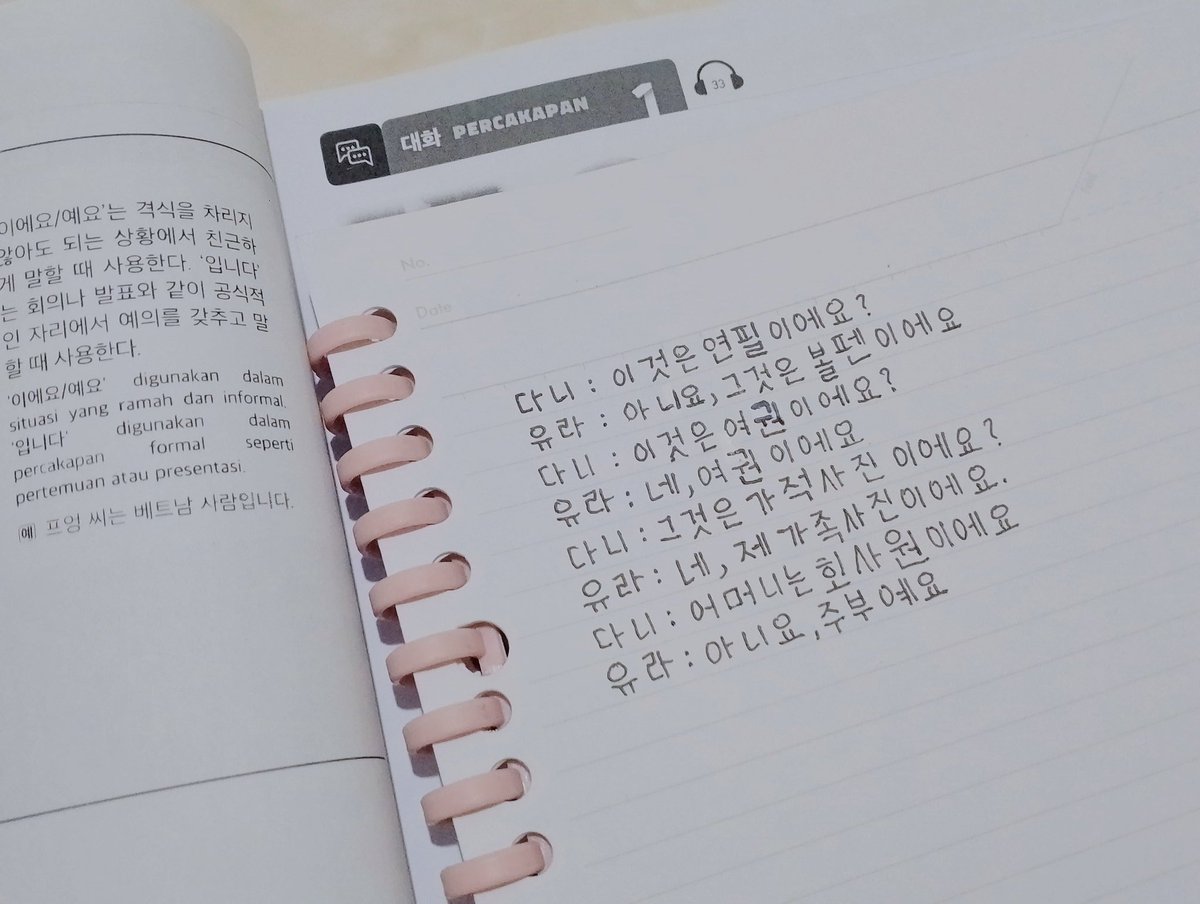 대화 PERCAKAPAN 1
33
이에요/예요'는 격식을 차리지
않아도 되는 상황에서 친근하
게 말할 때 사용한다. '입니다'
는 회의나 발표와 같이 공식적
인 자리에서 예의를 갖추고 말
할 때 사용한다.
'이에요/예요' digunakan dalam
situasi yang ramah dan informal.
'입니다' digunakan dalam
percakapan formal seperti
pertemuan atau presentasi.
예 프엉 씨는 베트남 사람입니다.
No.
Date
다니 : 이것은 연필이에요?
유라 : 아니요, 그것은 볼펜이에요
다니 : 이것은 여권이에요?
유라 : 네, 여권이에요
다니 : 그것은 가적사진 이에요?
유라 : 네, 제 가족사진이에요.
다니 : 어머니는 회사원이에요
유라 : 아니요, 주부예요